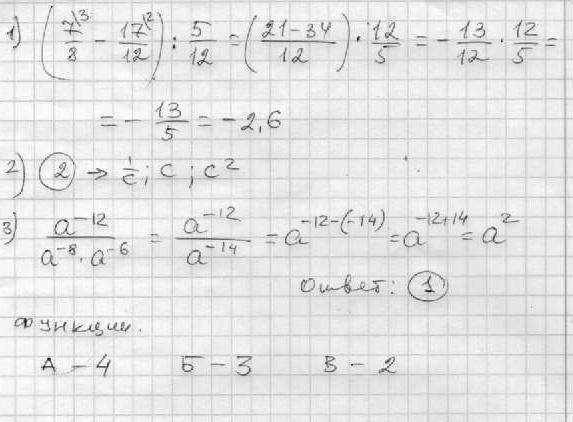 1) (7\3/8 − 17\2/12) : 5/12 = ((21−34)/12) · 12/5 = −13/12 · 12/5 =
= −13/5 = −2,6
2) ② → 1/c ; c ; c²
3) a⁻¹²/(a⁻⁸ · a⁻⁶) = a⁻¹²/a⁻¹⁴ = a⁻¹²⁻⁽⁻¹⁴⁾ = a⁻¹²⁺¹⁴ = a²
Ответ: ①
Функции.
А – 4 Б – 3 В – 2